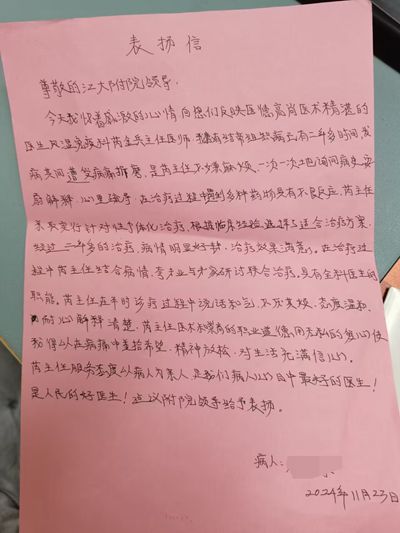 表扬信
尊敬的江大附院领导.
今天我怀着感激的心情向您们反映医德高尚医术精湛的
医生风湿免疫科芮金兵主任医师.患有结常组织病已有二年多时间发
病期间遭受病痛折磨.是芮主任不嫌麻烦.一次一次地询问病史安
解释.心里疏导.在治疗过程中遇到多种药物具有不良反应.芮主任
针对性个体化治疗.根据临床经验.选择了适合治疗方案.
经过二年多的治疗.病情明显好转.治疗效果满意。在治疗过
程中芮主任结合病情.专业与专家研讨联合治疗.具有全科医生的
职能.芮主任在平时诊疗过程中说话和气.不厌其烦.态度温和.
耐心解释清楚.芮主任医术和崇高的职业道德.用无私的爱心使
我得以在病痛中走抬希望.精神放松.对生活充满信心.
芮主任服务态度以病人为亲人.是我们病人心目中最好的医生!
是人民的好医生!建议附院领导给予表扬。
病人:
2024年11月23日